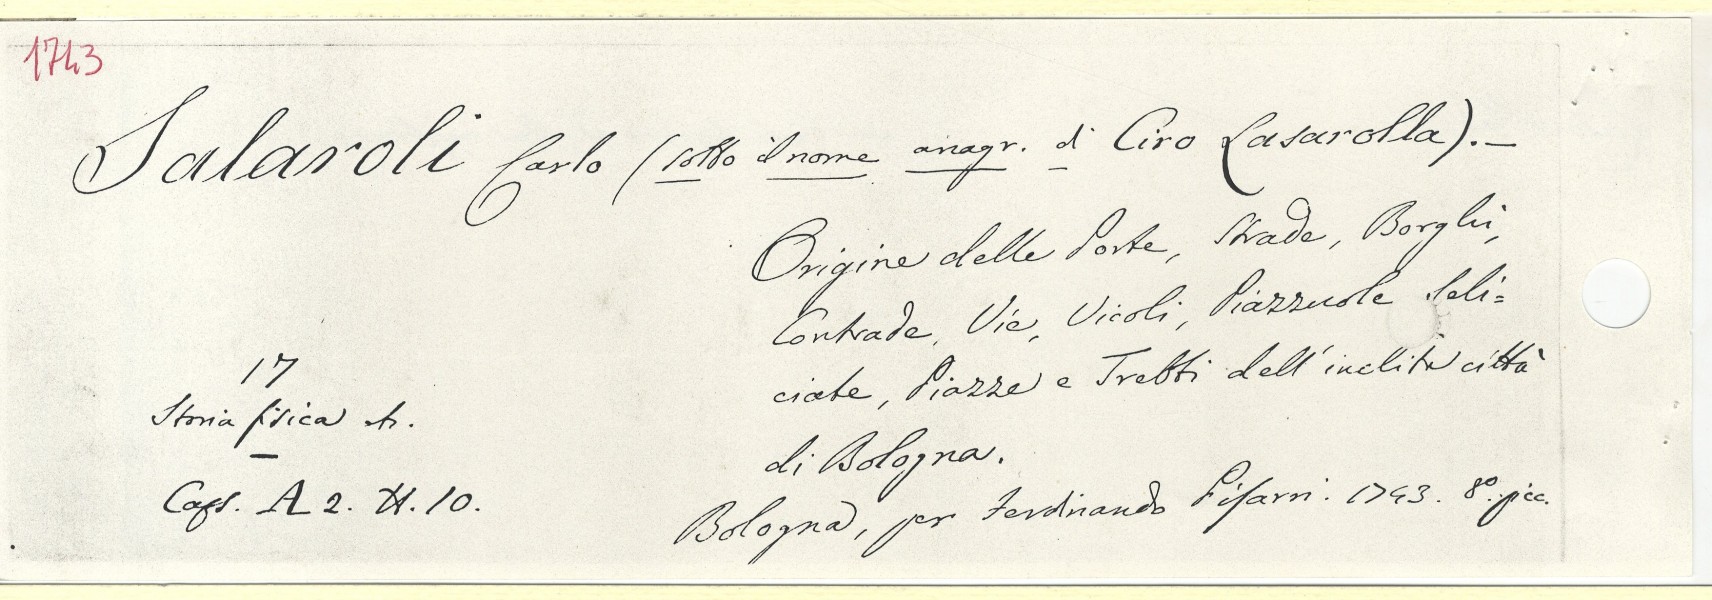 1743
Salaroli Carlo (sotto il nome anagr. di Ciro Lasarolla). —
Origine delle Porte, Strade, Borghi,
Contrade, Vie, Vicoli, Piazzuole Seli=
ciate, Piazze e Trebbi dell'inclita città
di Bologna.
Bologna, per Ferdinando Pisarri. 1743. 8.º picc.
17
Storia fisica etc.
Caps. A 2. N. 10.